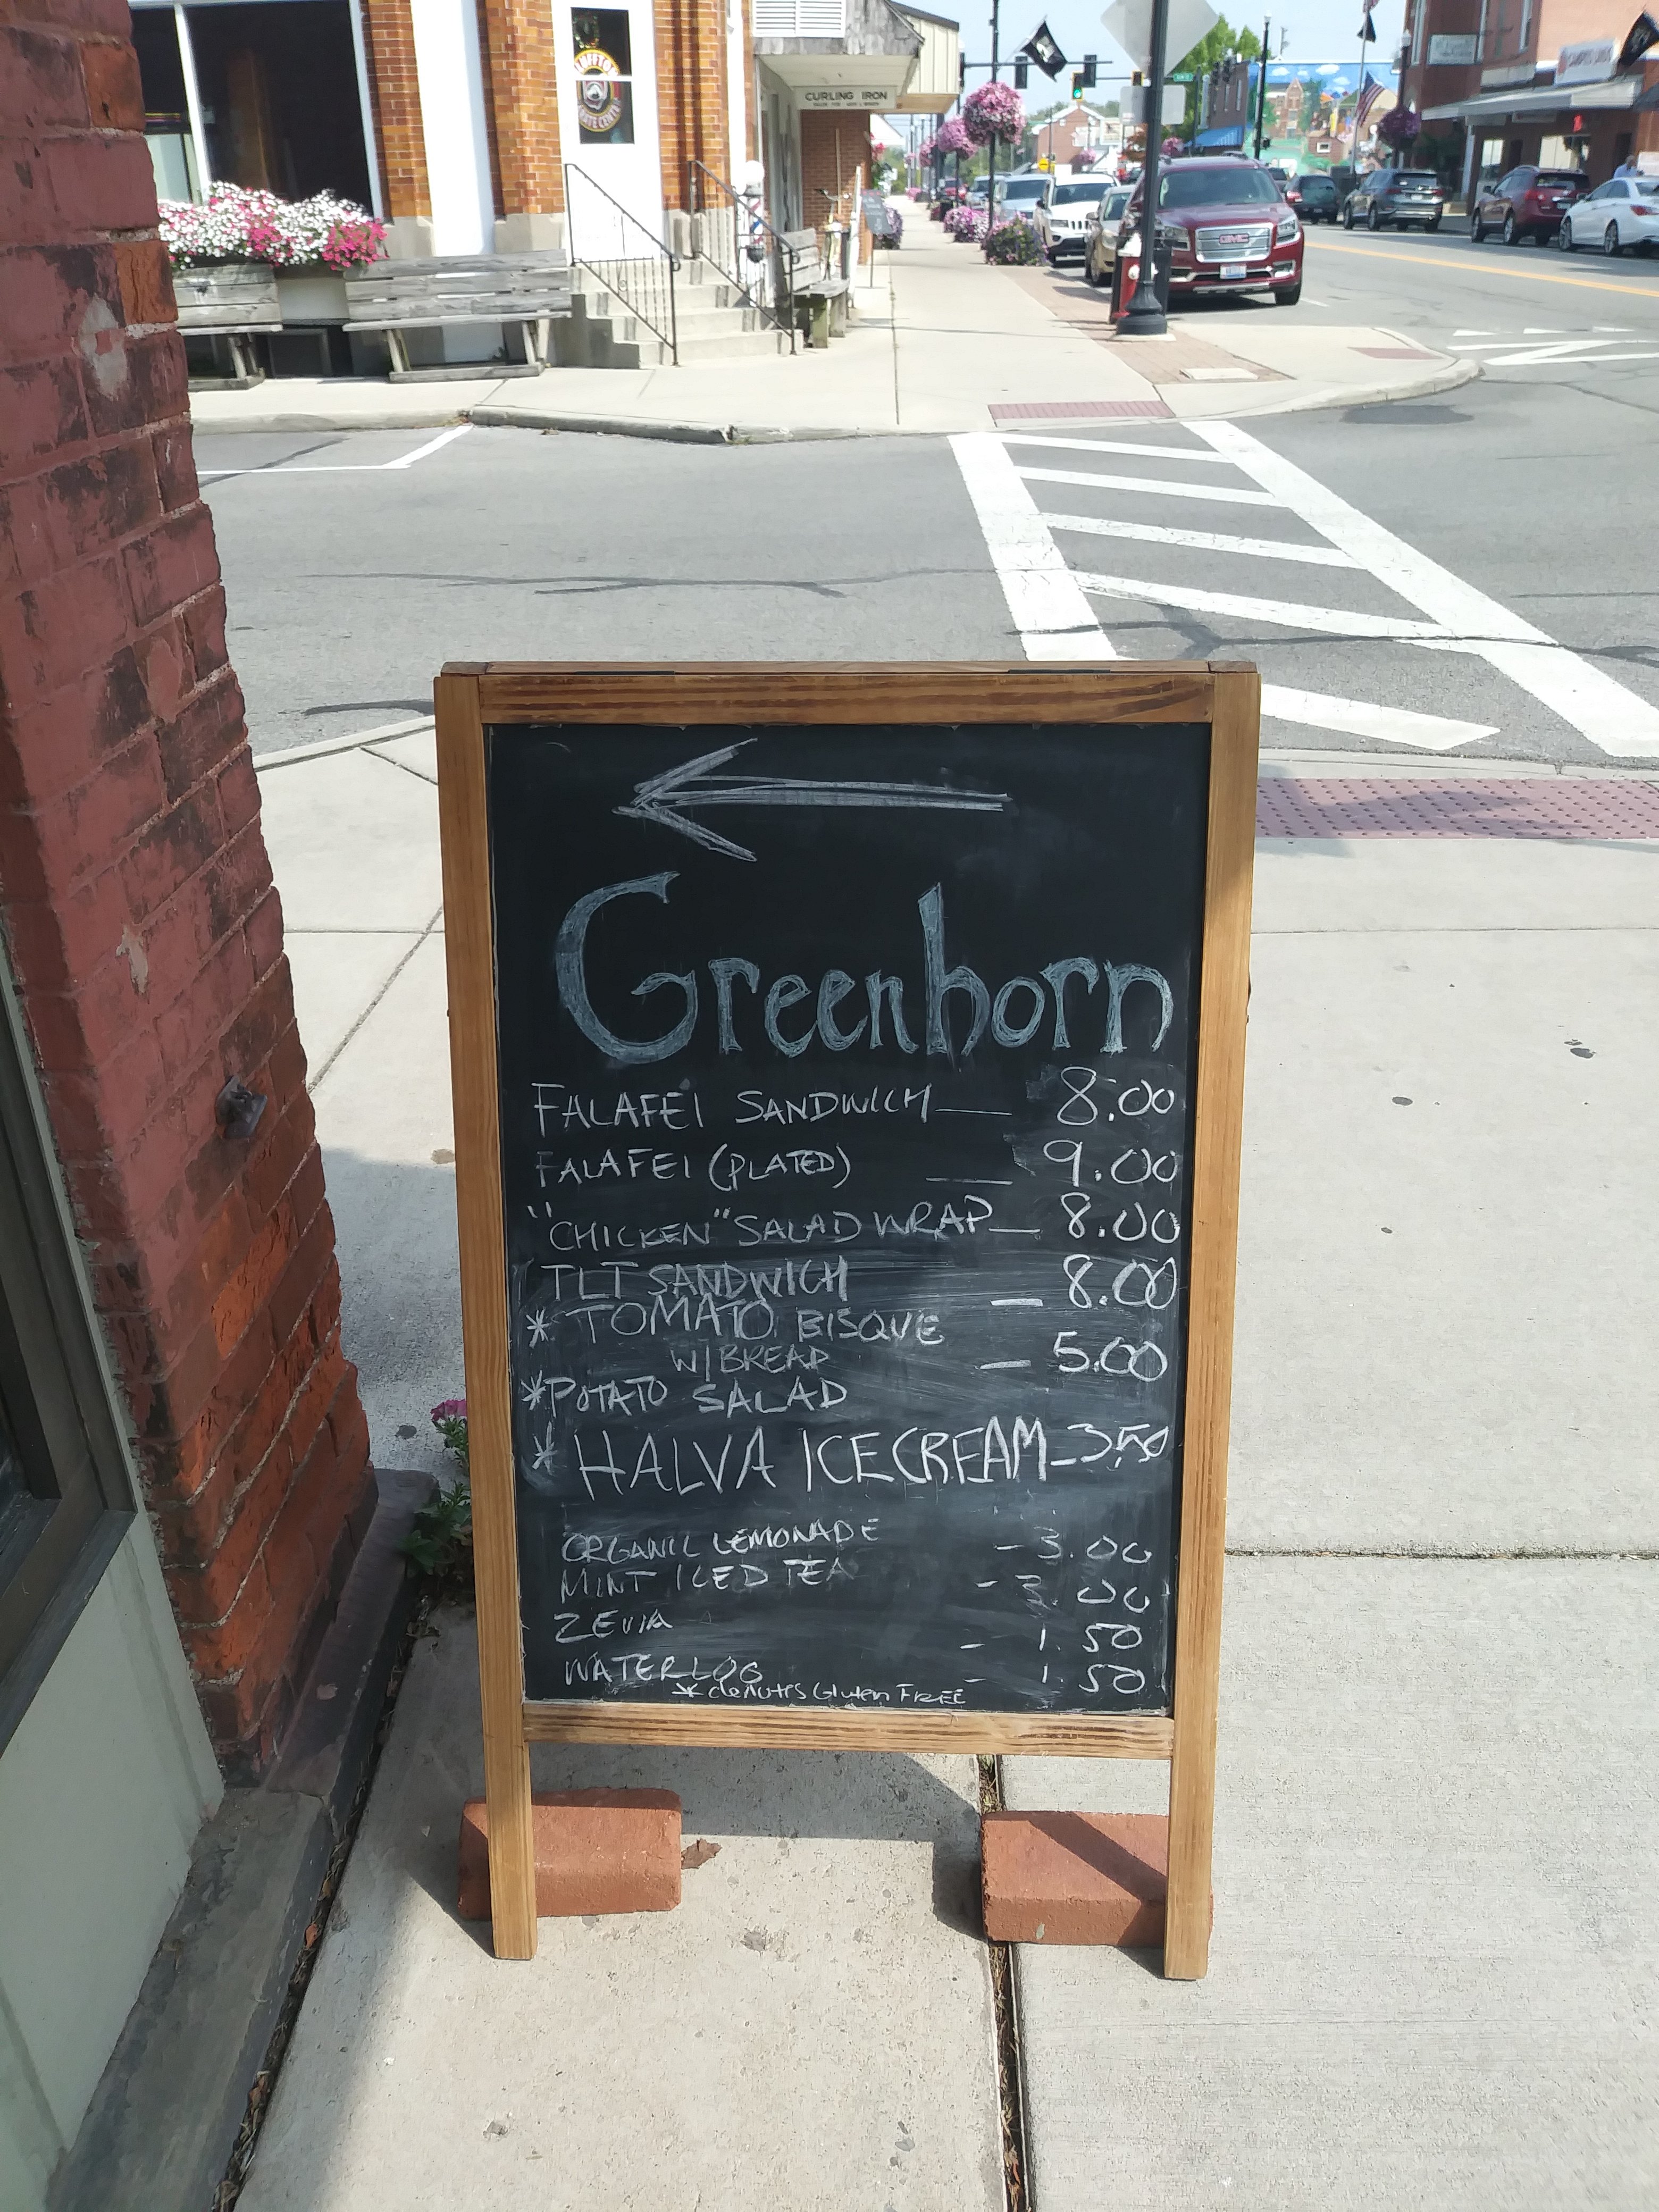 CURLING IRON
GMC
Greenhorn
FALAFEl SANDWICH — 8.00
FALAFEl (PLATED) — 9.00
"CHICKEN" SALAD WRAP — 8.00
TLT SANDWICH — 8.00
* TOMATO BISQUE
W/BREAD — 5.00
*POTATO SALAD
* HALVA ICE CREAM - 3.50
ORGANIC LEMONADE - 3.00
MINT ICED TEA - 3.00
ZEVIA - 1.50
WATERLOO - 1.50
* denotes Gluten FREE